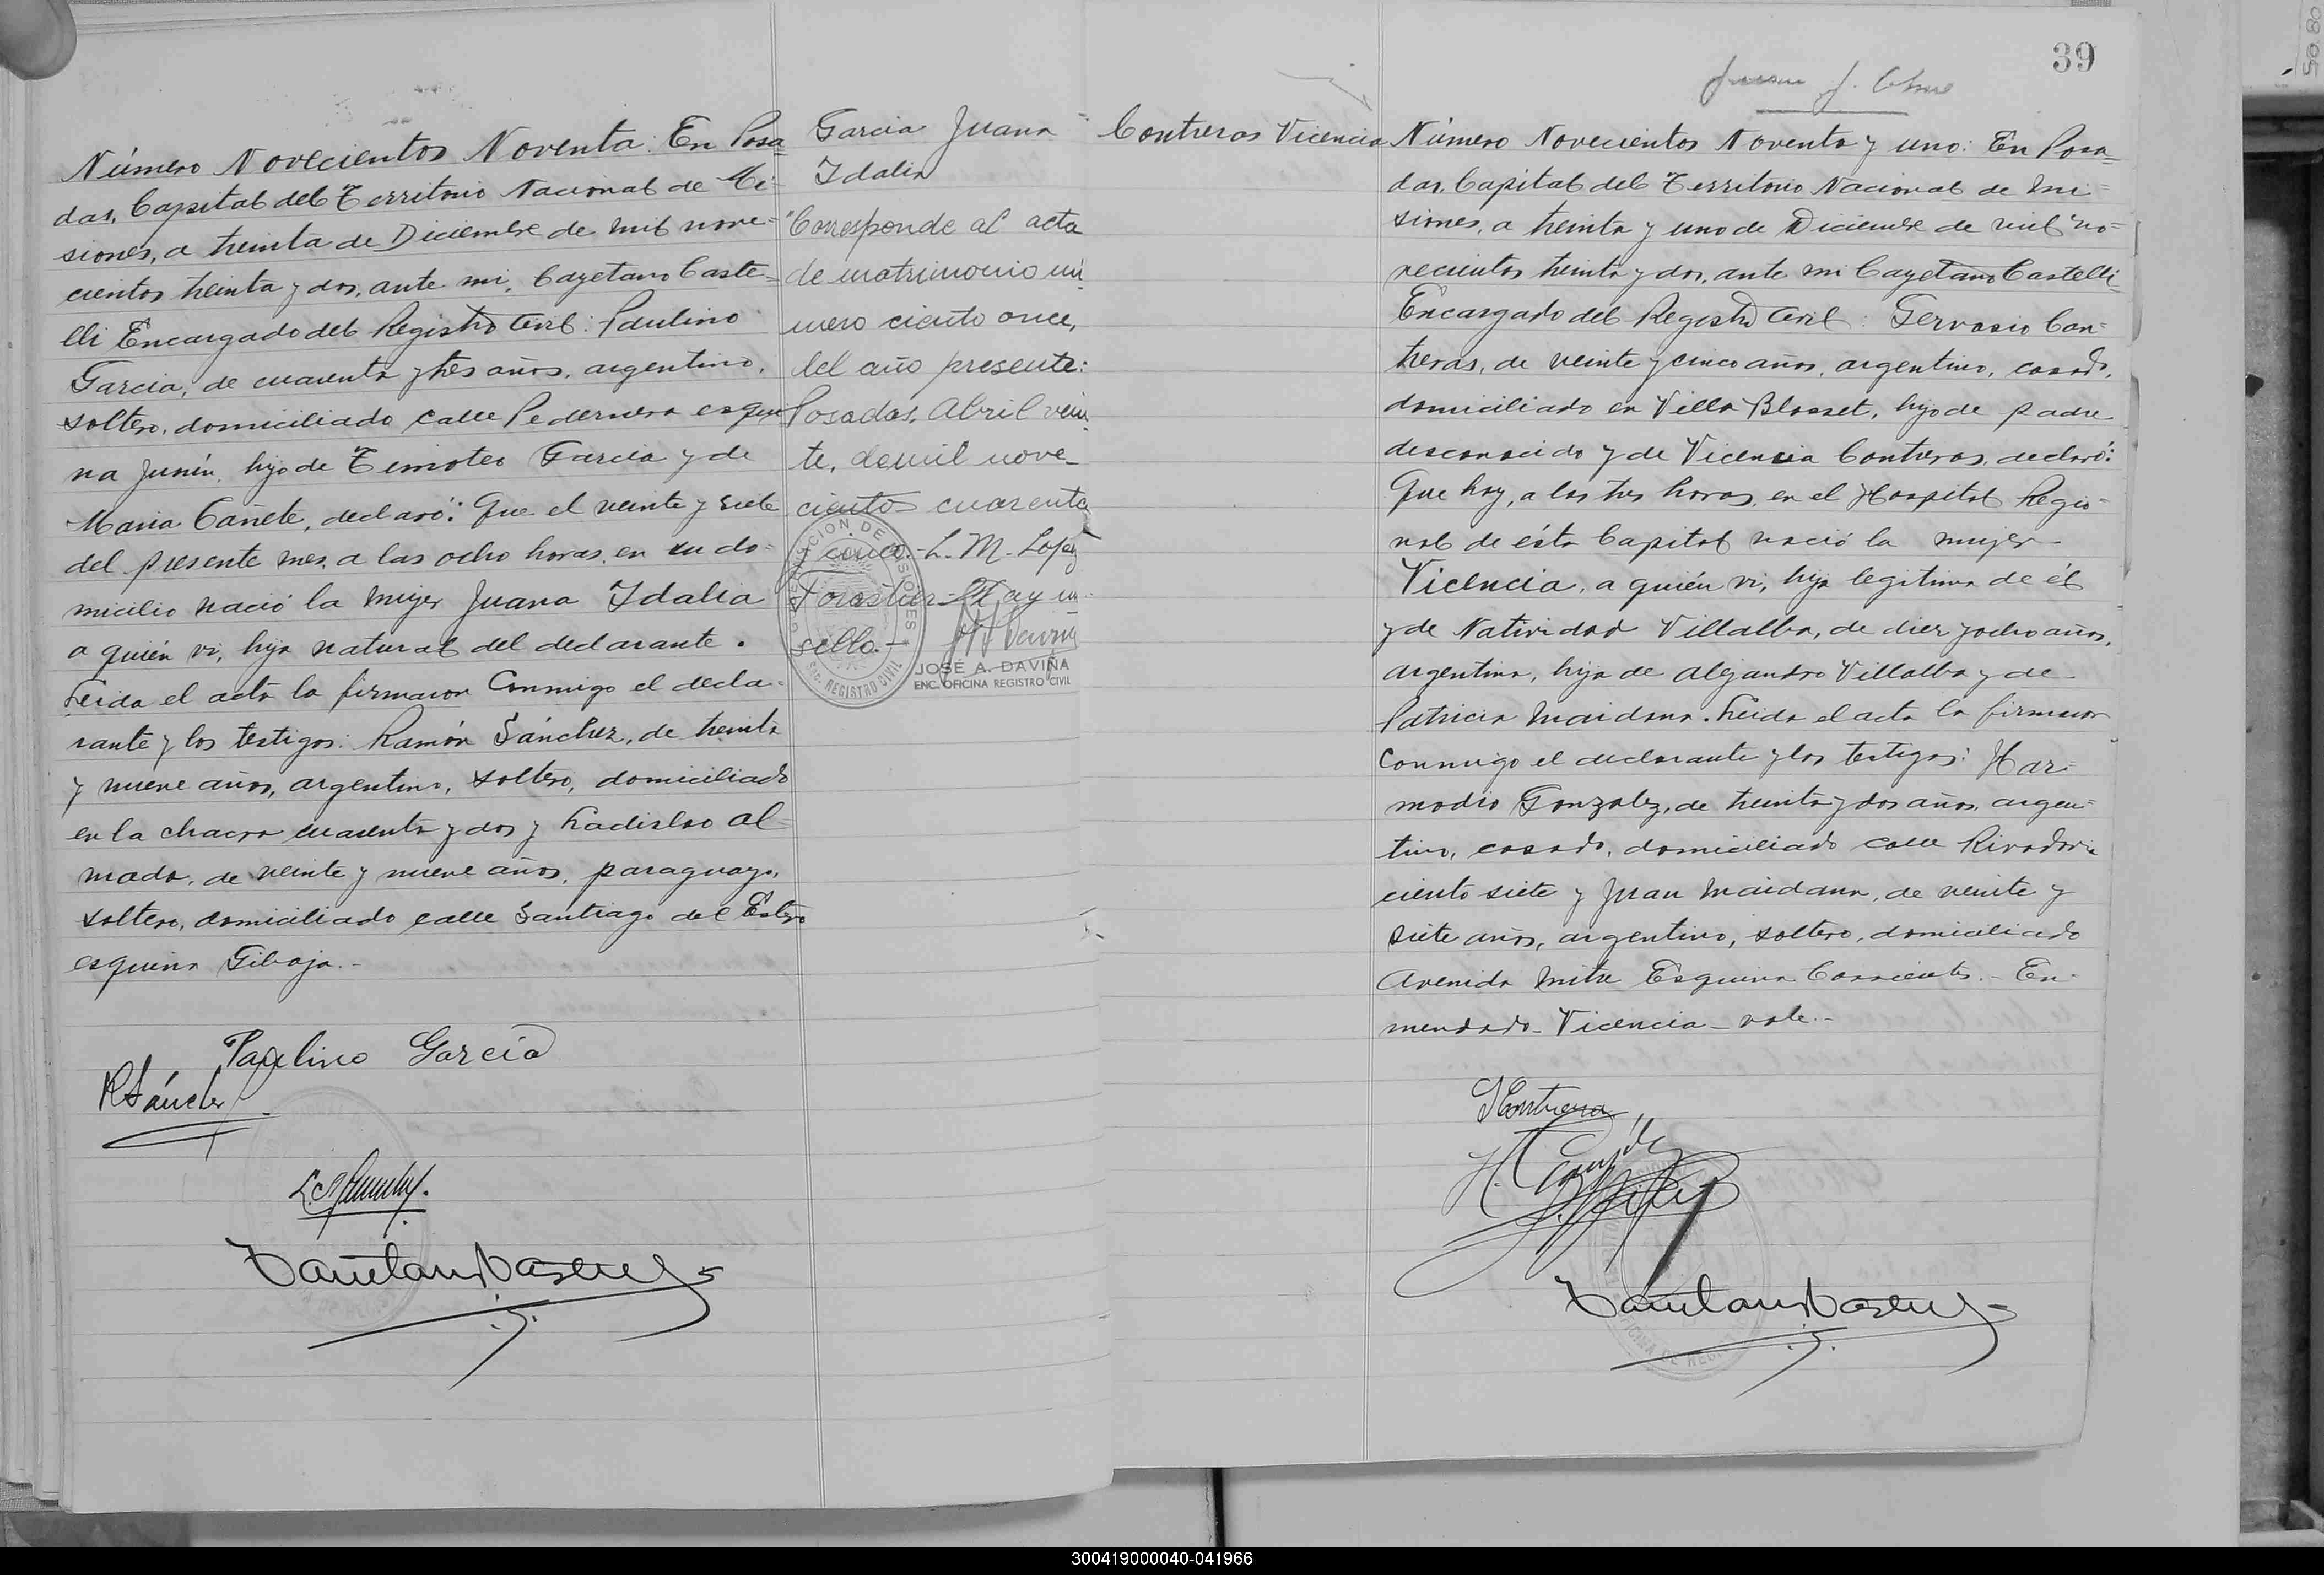 Número Novecientos Noventa: En Posa-
das, Capital del Territorio Nacional de Mi-
siones, a treinta de Diciembre de mil nove-
cientos treinta y dos, ante mi, Cayetano Caste-
lli Encargado del Registro Civil: Paulino
Garcia, de cuarenta y tres años, argentino,
soltero, domiciliado calle Pedernera esqui-
na Junín, hijo de Timoteo Garcia y de
Maria Cañete, declaró: Que el veinte y siete
del presente mes, a las ocho horas, en su do-
micilio nació la mujer Juana Idalia
a quién vi, hija natural del declarante.
Leida el acta la firmaron Conmigo el decla-
rante y los testigos: Ramón Sánchez, de treinta
y nueve años, argentino, soltero, domiciliado
en la chacra cuarenta y dos y Ladislao Al-
mada, de veinte y nueve años, paraguayo,
soltero, domiciliado calle Santiago del Estero
esquina Gibaja.-
Paulino Garcia
RSánchez
Garcia Juana
Idalia
Corresponde al acta
de matrimonio nú-
mero ciento once,
del año presente:
Posadas, Abril vein-
te, de mil nove-
cientos cuarenta
y cinco.- L. M. Lopez
Forastier- Hay un
sello.-
GOBERNACION DE MISIONES
REGISTRO CIVIL
JOSÉ A. DAVIÑA
ENC. OFICINA REGISTRO CIVIL
39
Contreras Vicencia
Número Novecientos Noventa y uno: En Posa-
das, Capital del Territorio Nacional de Mi-
siones, a treinta y uno de Diciembre de mil no-
vecientos treinta y dos, ante mi Cayetano Castelli
Encargado del Registro Civil: Gervasio Con-
treras, de veinte y cinco años, argentino, casado,
domiciliado en Villa Blosset, hijo de padre
desconocido y de Vicencia Contreras, declaró:
Que hoy, a las tres horas, en el Hospital Regio-
nal de ésta Capital nació la mujer
Vicencia, a quién vi, hija legitima de él
y de Natividad Villalba, de diez y ocho años,
argentina, hija de Alejandro Villalba y de
Patricia Maidana. Leida el acta la firmaron
Conmigo el declarante y los testigos: Har-
modio Gonzalez, de treinta y dos años, argen-
tino, casado, domiciliado calle Rivadavia
ciento siete y Juan Maidana, de veinte y
siete años, argentino, soltero, domiciliado
Avenida Mitre Esquina Corrientes.- En-
mendado- Vicencia- vale.-
GContreras
300419000040-041966